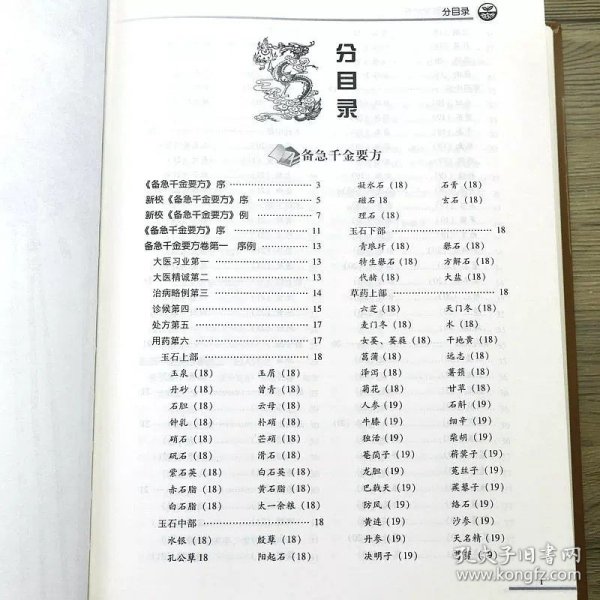 分目录
分目录
备急千金要方
《备急千金要方》序 …… 3
新校《备急千金要方》序 …… 5
新校《备急千金要方》例 …… 7
《备急千金要方》序 …… 11
备急千金要方卷第一 序例 …… 13
大医习业第一 …… 13
大医精诚第二 …… 13
治病略例第三 …… 14
诊候第四 …… 15
处方第五 …… 17
用药第六 …… 17
玉石上部 …… 18
玉泉(18) 玉屑(18)
丹砂(18) 曾青(18)
石胆(18) 云母(18)
钟乳(18) 朴硝(18)
硝石(18) 芒硝(18)
矾石(18) 滑石(18)
紫石英(18) 白石英(18)
赤石脂(18) 黄石脂(18)
白石脂(18) 太一余粮(18)
玉石中部 …… 18
水银(18) 殷孽(18)
孔公孽18 阳起石(18)
凝水石(18) 石膏(18)
磁石18 玄石(18)
理石(18)
玉石下部 …… 18
青琅玕(18) 礜石(18)
特生礜石(18) 方解石(18)
代赭(18) 大盐(18)
草药上部 …… 18
六芝(18) 天门冬(18)
麦门冬(18) 术(18)
女萎、萎蕤(18) 干地黄(18)
菖蒲(18) 远志(18)
泽泻(18) 薯蓣(18)
菊花(18) 甘草(18)
人参(19) 石斛(19)
牛膝(19) 细辛(19)
独活(19) 柴胡(19)
菴䕡子(19) 薪蓂子(19)
龙胆(19) 菟丝子(19)
巴戟天(19) 蒺藜子(19)
防风(19) 络石(19)
黄连(19) 沙参(19)
丹参(19) 天名精(19)
决明子(19)
1
孔夫子旧书网
www.kongfz.com